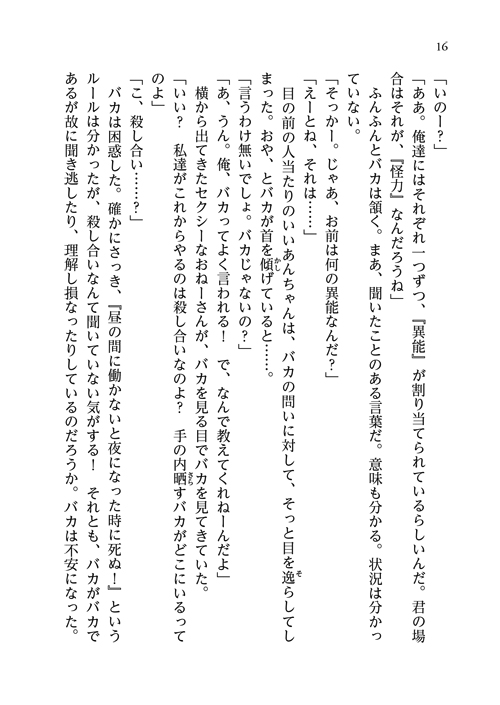 16
「いのー?」
「ああ。俺達にはそれぞれ一つずつ、『異能』が割り当てられているらしいんだ。君の場
合はそれが、『怪力』なんだろうね」
　ふんふんとバカは頷く。まあ、聞いたことのある言葉だ。意味も分かる。状況は分かっ
ていない。
「そっかー。じゃあ、お前は何の異能なんだ?」
「えーとね、それは……」
　目の前の人当たりのいいあんちゃんは、バカの問いに対して、そっと目を逸らしてし
まった。おや、とバカが首を傾げていると……。
「言うわけ無いでしょ。バカじゃないの?」
「あ、うん。俺、バカってよく言われる!　で、なんで教えてくれねーんだよ」
　横から出てきたセクシーなおねーさんが、バカを見る目でバカを見てきていた。
「いい?　私達がこれからやるのは殺し合いなのよ?　手の内晒すバカがどこにいるって
のよ」
「こ、殺し合い……?」
　バカは困惑した。確かにさっき、『昼の間に働かないと夜になった時に死ぬ!』という
ルールは分かったが、殺し合いなんて聞いていない気がする!　それとも、バカがバカで
あるが故に聞き逃したり、理解し損なったりしているのだろうか。バカは不安になった。